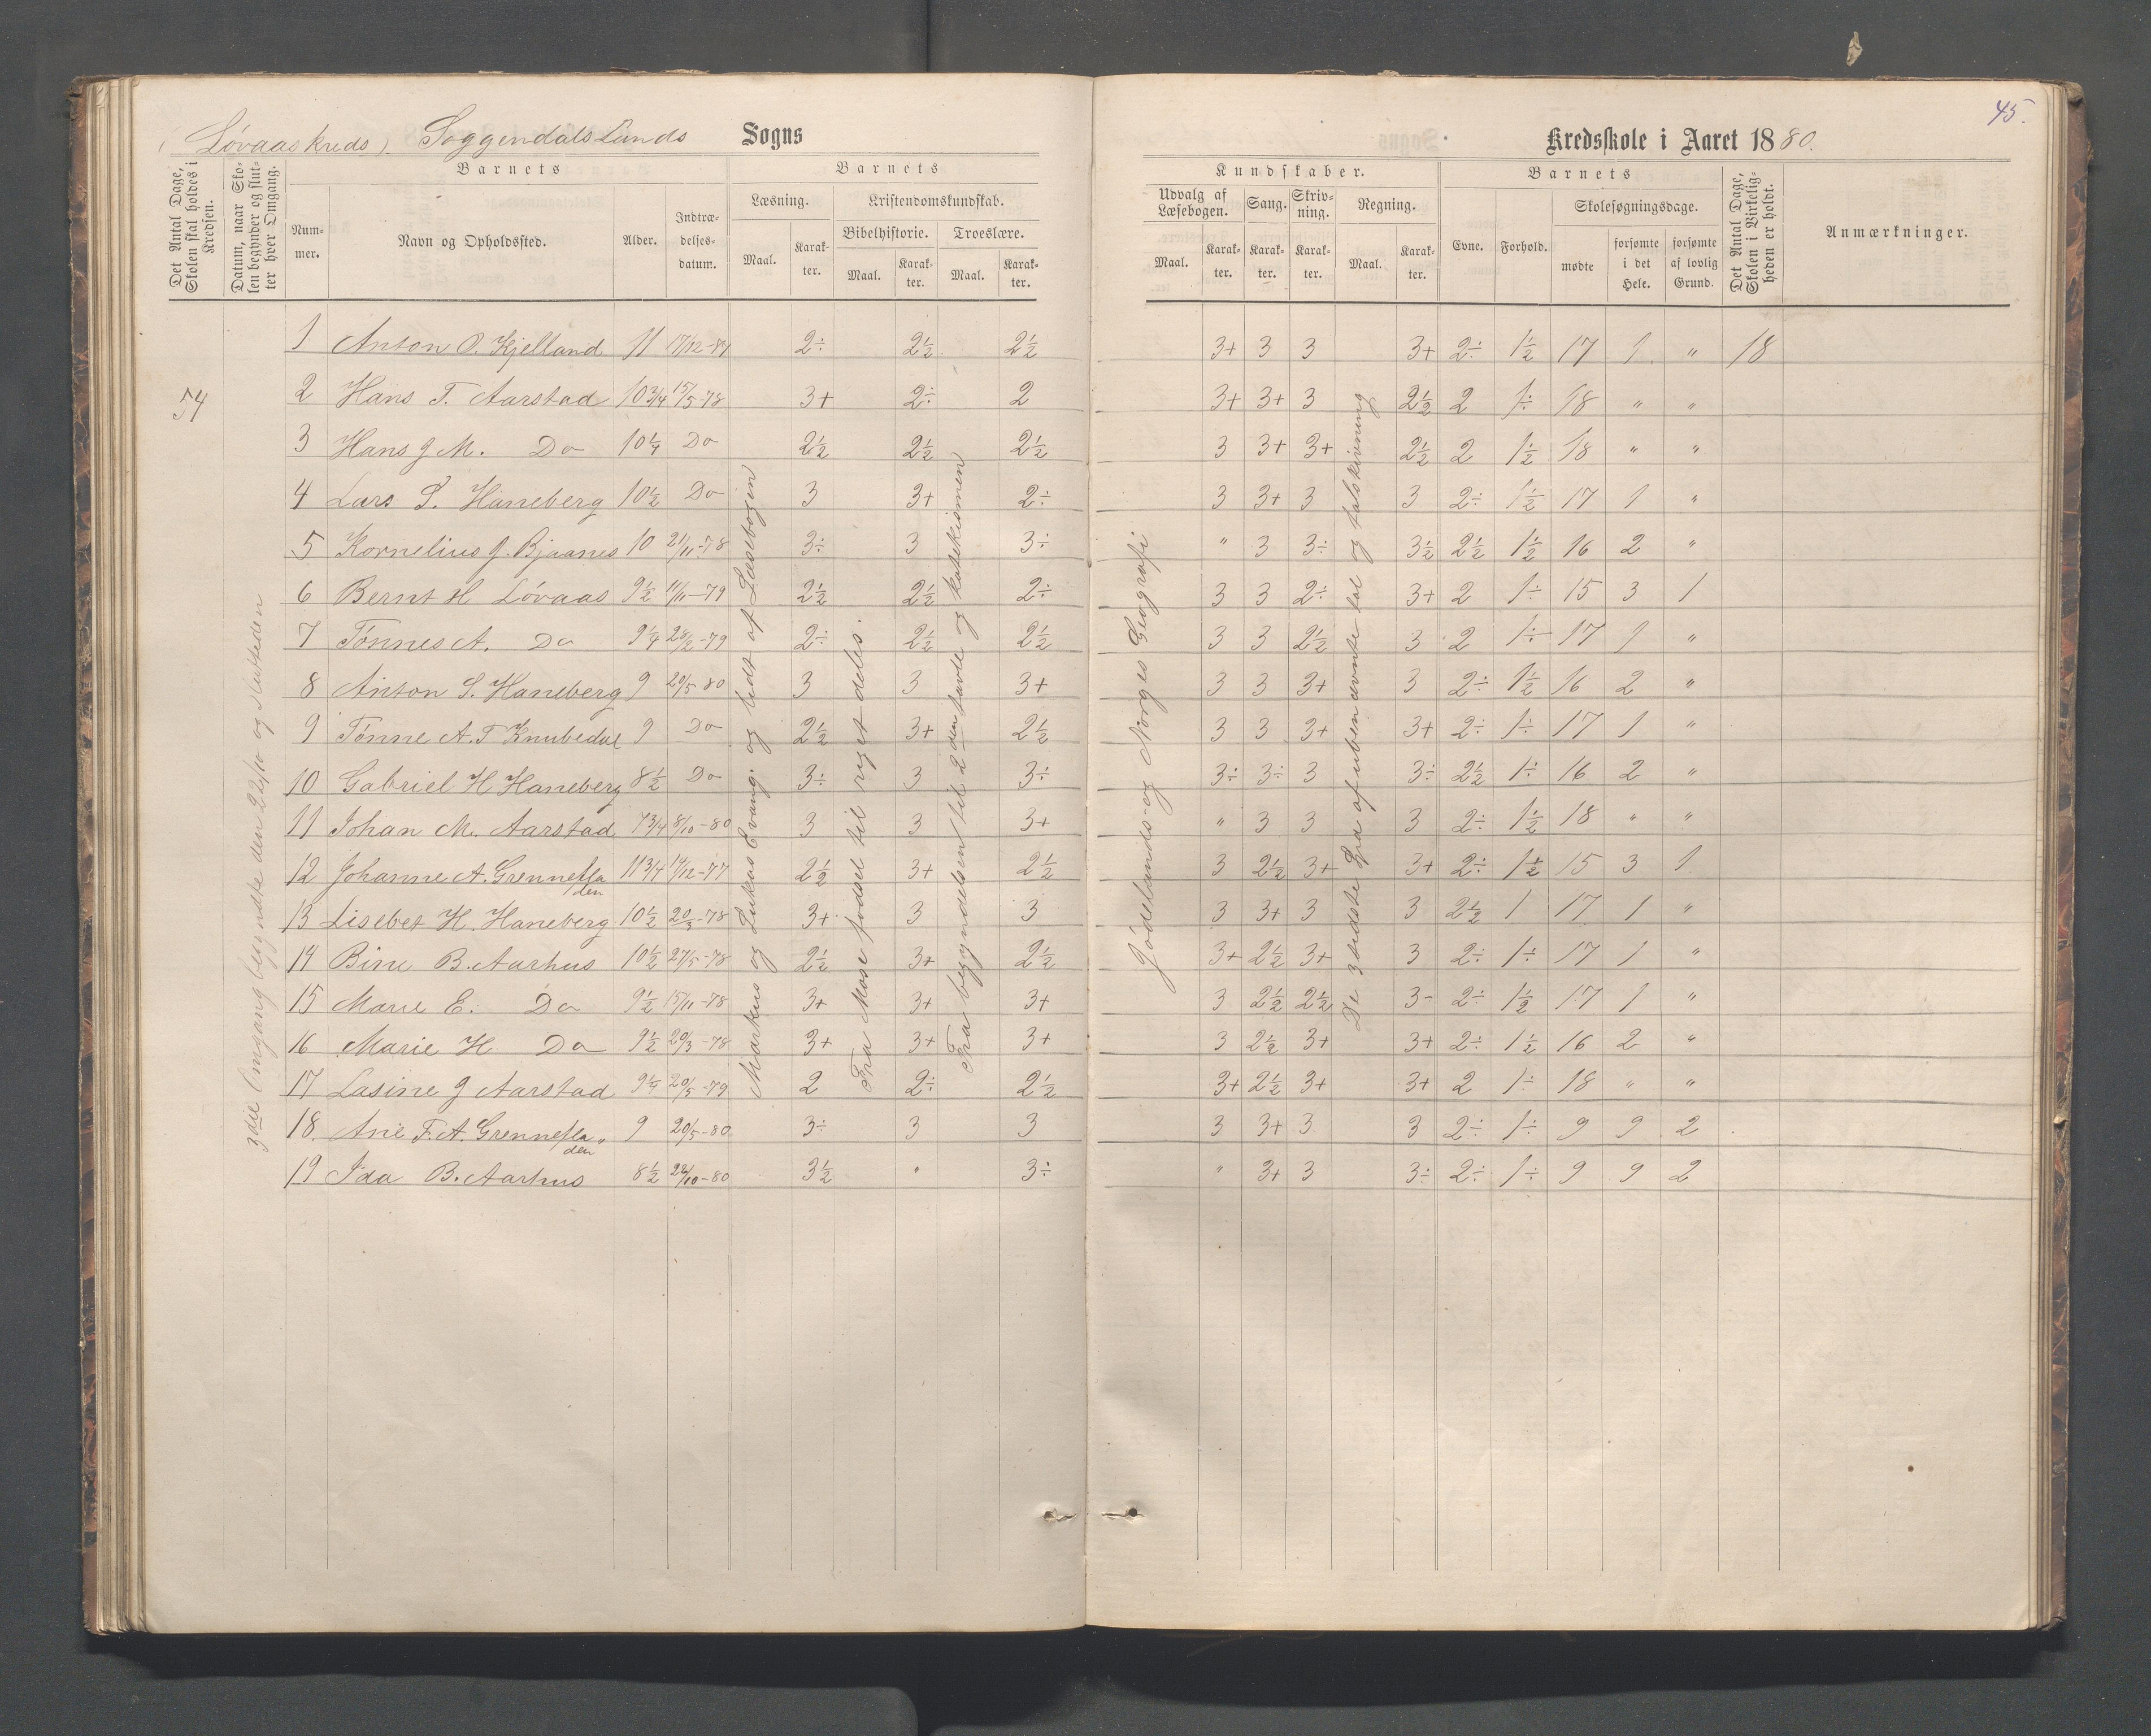 45.
(Løvaas kreds). Soggendals Lands Sogns Kredsskole i Aaret 1880.
Det Antal Dage, Skolen skal holdes i Kredsen.
Datum, naar Skolen begynder og slutter hver Omgang.
Barnets
Nummer. Navn og Opholdssted. Alder. Indtrædelsesdatum.
Barnets
Læsning. Kristendomskundskab.
Bibelhistorie. Troeslære.
Maal. Karakter. Maal. Karakter. Maal. Karakter.
Kundskaber.
Udvalg af Læsebogen. Sang. Skrivning. Regning.
Maal. Karakter. Karakter. Karakter. Maal. Karakter.
Barnets
Evne. Forhold. Skolesøgningsdage.
mødte forsømte i det Hele. forsømte af lovlig Grund.
Det Antal Dage, Skolen i Virkeligheden er holdt.
Anmærkninger.
54
3die Omgang begyndte den 22/10 og sluttede den
Markus og Lukas Evang. og lidt af Læsebogen
Fra Mose fødsel til riget deles.
Fra begyndelsen til 2den savle og katekismen
Jødelands- og Norges Geografi
De 3 sidste Spa af ubenævnte tal og talskrivning
1 Anton O. Kjelland 11 17/12-87 2÷ 2½ 2½ 3+ 3 3 3+ 2÷ 1½ 17 1 " 18
2 Hans T. Aarstad 10 3/4 15/5-78 3+ 2÷ 2 3+ 3+ 3 2½ 2 1÷ 18 " "
3 Hans J M. Do 10 1/4 Do 2½ 2½ 2½ 3 3+ 3+ 2½ 2 1½ 18 " "
4 Lars S. Haneberg 10½ Do 3 3+ 2÷ 3 3+ 3 3 2÷ 1½ 17 1 "
5 Kornelius J. Bjaanes 10 21/11-78 3÷ 3 3÷ " 3 3÷ 3½ 2½ 1½ 16 2 "
6 Bernt H Løvaas 9½ 11/11-79 2½ 2½ 2÷ 3 3 2÷ 3+ 2 1÷ 15 3 1
7 Tønnes A. Do 9 1/4 28/2-79 2÷ 2½ 2½ 3 3 2½ 3 2 1÷ 17 1 "
8 Anton S. Haneberg 9 20/5 80 3 3 3+ 3 3 3+ 3 2÷ 1½ 16 2 "
9 Tønne A. T Knubedal 9 Do 2½ 3+ 2½ 3 3 3+ 3+ 2÷ 1÷ 17 1 "
10 Gabriel H Haneberg 8½ Do 3÷ 3 3÷ 3÷ 3÷ 3 3÷ 2½ 1÷ 16 2 "
11 Johan M. Aarstad 7 3/4 8/10-80 3 3 3+ " 3 3 3 2÷ 1½ 18 " "
12 Johanne A. Grennesladen 11 3/4 14/12-77 2½ 3+ 2½ 3 2½ 3+ 3+ 2÷ 1½ 15 3 1
13 Lisebet H. Haneberg 10½ 20/3-78 3+ 3 3 3 3+ 3 3 2½ 1 17 1 "
14 Bine B. Aarhus 10½ 27/5-78 2½ 3+ 2½ 3+ 2½ 3+ 3 2÷ 1÷ 17 1 "
15 Marie E. Do 9½ 15/11-78 3+ 3+ 3+ 3 2½ 2½ 3- 2÷ 1½ 17 1 "
16 Marie H Do 9½ 20/3-78 3+ 3+ 3+ 3 2½ 3+ 3+ 2÷ 1½ 16 2 "
17 Lasine J Aarstad 9 1/4 20/5-79 2 2÷ 2½ 3+ 2½ 3+ 3+ 2 1÷ 18 " "
18. Ane F. A. Grennesladen 9 20/5-80 3÷ 3 3 3 3+ 3 3 2÷ 1÷ 9 9 2
19 Ida B. Aarhus 8½ 22/10-80 3½ " 3÷ " 3+ 3 3÷ 2÷ 1÷ 9 9 2